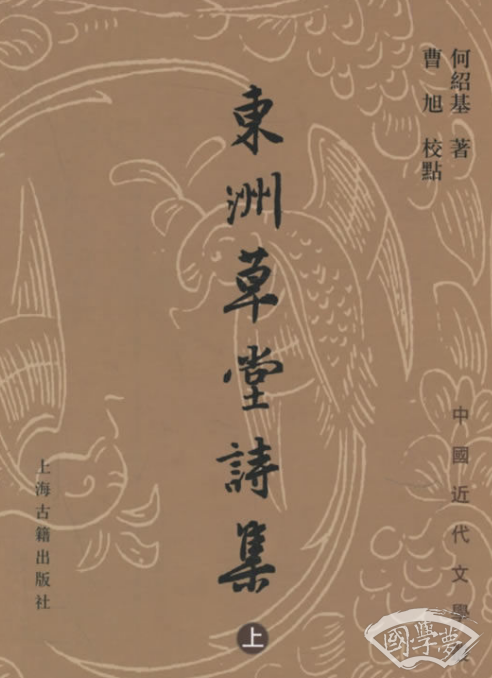 何紹基 著
曹 旭 校點
東洲草堂詩集
上
中國近代文學
上海古籍出版社
國學夢